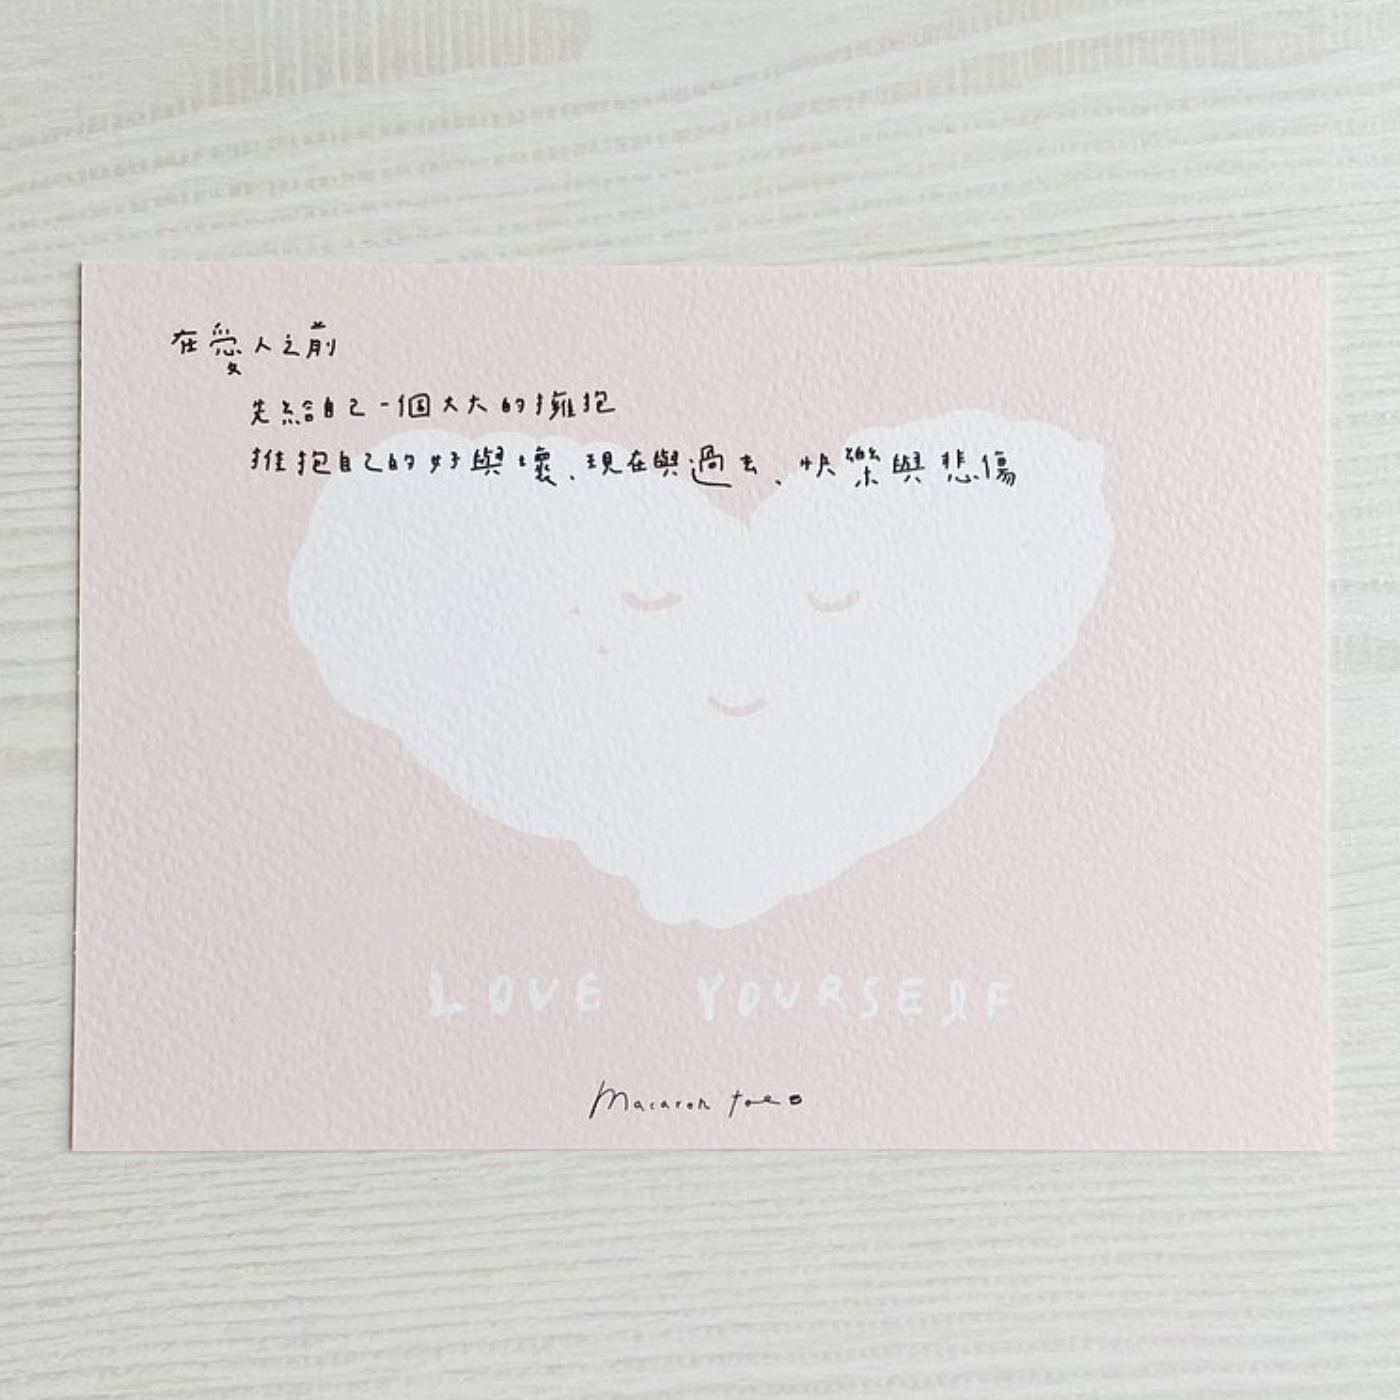 在愛人之前
先給自己一個大大的擁抱
擁抱自己的好與壞、現在與過去、快樂與悲傷
LOVE YOURSELF
Macaron toe